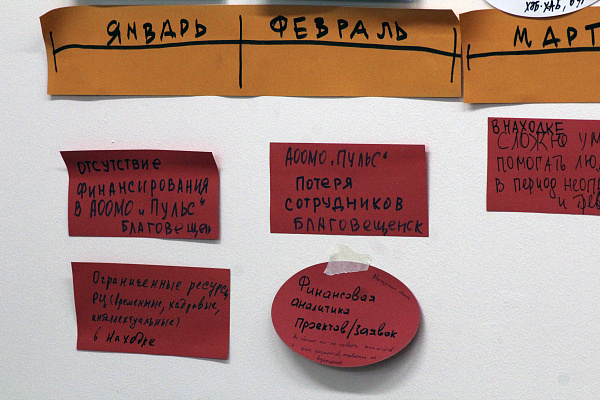 ЯНВАРЬ ФЕВРАЛЬ МАРТ
ОТСУТСТВИЕ
ФИНАНСИРОВАНИЯ
В АООМО „ПУЛЬС“
БЛАГОВЕЩЕН
АООМО „ПУЛЬС“
Потеря
СОТРУДНИКОВ
БЛАГОВЕЩЕНСК
В НАХОДКЕ
СЛОЖНО УМ
ПОМОГАТЬ ЛЮ
В ПЕРИОД НЕОП
И ТРЕВ
Ограниченные ресурсы
РЦ (временные, кадровые,
интеллектуальные)
в Находке
Финансовая
аналитика
Проектов/заявок